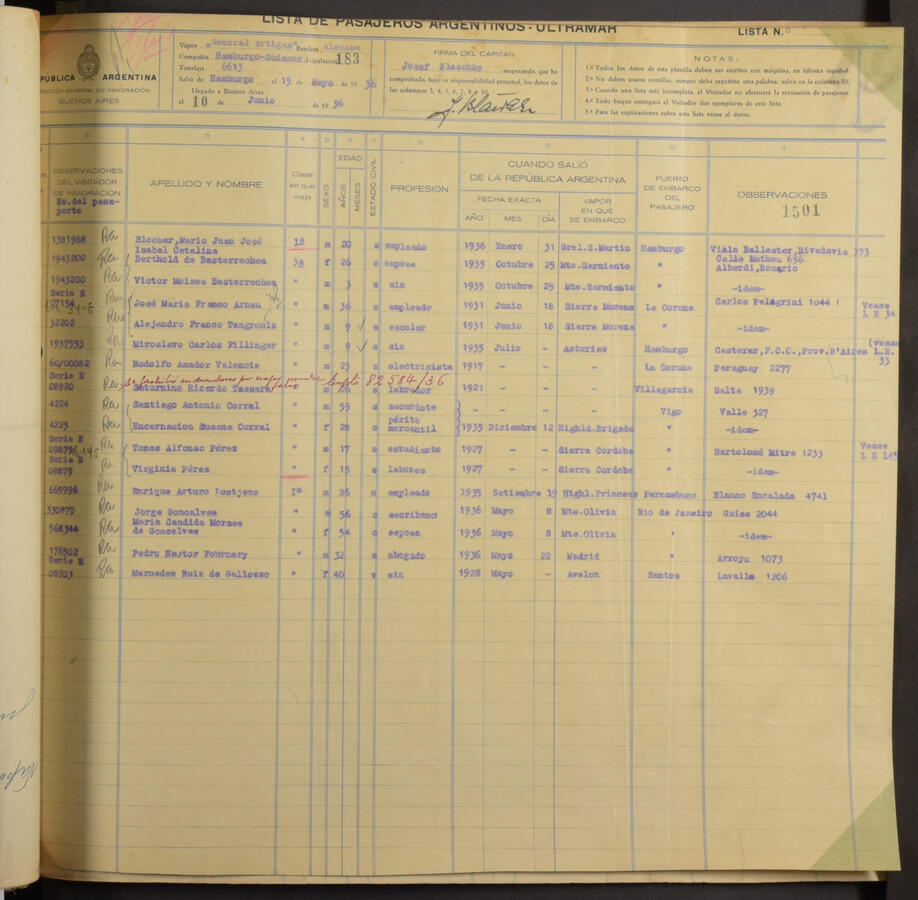 LISTA DE PASAJEROS ARGENTINOS - ULTRAMAR
LISTA N.º
REPÚBLICA ARGENTINA
DIRECCIÓN GENERAL DE INMIGRACIÓN
BUENOS AIRES
Vapor "General Artigas" Bandera alemana
Compañía Hamburgo-Sudamer. Tripulación 183
Tonelaje 6613
Salió de Hamburgo el 15 de Mayo de 19 36
Llegado a Buenos Aires
el 10 de Junio de 19 36
FIRMA DEL CAPITAN
Josef Blaschke asegurando, que ha
comprobado, bajo su responsabilidad personal, los datos de
las columnas 3, 4, 5, 6, 7, 8 y 10.
NOTAS:
1.ª Todos los datos de esta planilla deben ser escritos con máquina, en idioma español.
2.ª No deben usarse comillas, aunque deba repetirse una palabra, salvo en la columna 10.
3.ª Cuando una lista esté incompleta, el Visitador no efectuará la revisación de pasajeros.
4.ª Todo buque entregará el Visitador dos ejemplares de esta lista.
5.ª Para las explicaciones sobre esta lista véase al dorso.
2 3 4 5 6 7 8 9 10 11
OBSERVACIONES DEL VISITADOR DE INMIGRACION
No. del pasaporte
APELLIDO Y NOMBRE
Clase en que viaja
SEXO
EDAD
AÑOS
MESES
ESTADO CIVIL
PROFESION
CUANDO SALIÓ
DE LA REPUBLICA ARGENTINA
FECHA EXACTA
AÑO MES DÍA
VAPOR EN QUE SE EMBARCO
PUERTO DE EMBARCO DEL PASAJERO
OBSERVACIONES
1501
1381988 Blocher, Mario Juan José 1ª m 20 s empleado 1936 Enero 31 Gral. S. Martin Hamburgo Villa Ballester, Rivadavia 373
Isabel Catalina Calle Matheu 656
1943200 Berthold de Basterrechea 3a f 26 c esposa 1935 Octubre 25 Mte. Sarmiento " Alberdi, Rosario
1943200 Victor Moises Basterrechea " m 3 s sin 1935 Octubre 25 Mte. Sarmiento " -idem-
Serie E
José Maria Franco Arnau " m 36 c empleado 1931 Junio 18 Sierra Morena La Coruna Carlos Pelegrini 1044 Vease L E 34
32202 Alejandro Franco Tangronis " m 9 s escolar 1931 Junio 18 Sierra Morena " -idem-
1937553 Miroslavo Carlos Pillinger " m 9 s sin 1935 Julio - Asturias Hamburgo Castelar, F.C.O., Prov. B'Aires (vease L.E. 33
60/00082 Rodolfo Amador Valencia " m 23 s electricista 1917 - - La Coruna Paraguay 2277
Serie E
82584/36
08920 Saturnino Ricardo Tassara " m s labrador 1921 - - Villagarcia Salta 1939
4224 Santiago Antonio Corral " m 55 s sacerdote - - - Vigo Valle 327
4223 Encarnacion Susana Corral " f 28 s périto mercantil 1935 Diciembre 12 Highld. Brigade " -idem-
Serie E
Tomas Alfonso Pérez " m 17 s estudiante 1927 - - Sierra Cordoba " Bartolomé Mitre 1233 Vease L E 145
Serie E
09879 Virginia Pérez " f 15 s labores 1927 - - Sierra Cordoba " -idem-
665996 Enrique Arturo Lustjens 1ª m 26 c empleado 1935 Setiembre 19 Highl. Princess Pernambuco Blanco Encalada 4741
330879 Jorge Goncalves " m 56 c escribano 1936 Mayo 8 Mte. Olivia Rio de Janeiro Guise 2044
Maria Candida Moraes
568344 de Goncalves " f 54 c esposa 1936 Mayo 8 Mte. Olivia " -idem-
176502 Pedro Hector Fournery " m 32 s abogado 1936 Mayo 22 Madrid " Arroyo 1073
Serie E
08703 Mercedes Ruiz de Gallosso " f 40 v sin 1928 Mayo - Avelon Santos Lavalle 1206